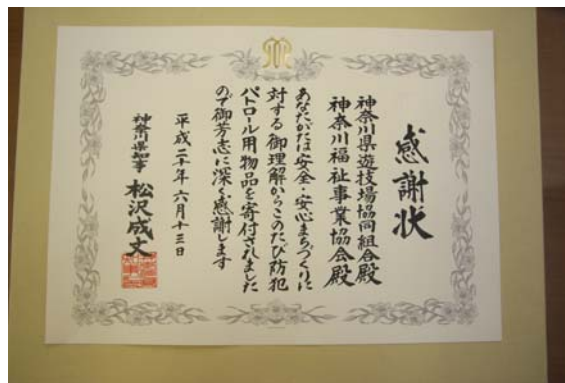 感謝状
神奈川県遊技場協同組合殿
神奈川福祉事業協会殿
あなたがたは安全・安心まちづくりに
対する御理解からこのたび防犯
パトロール用物品を寄付されました
ので御芳志に深く感謝します
平成二十年六月十三日
神奈川県知事 松沢成文